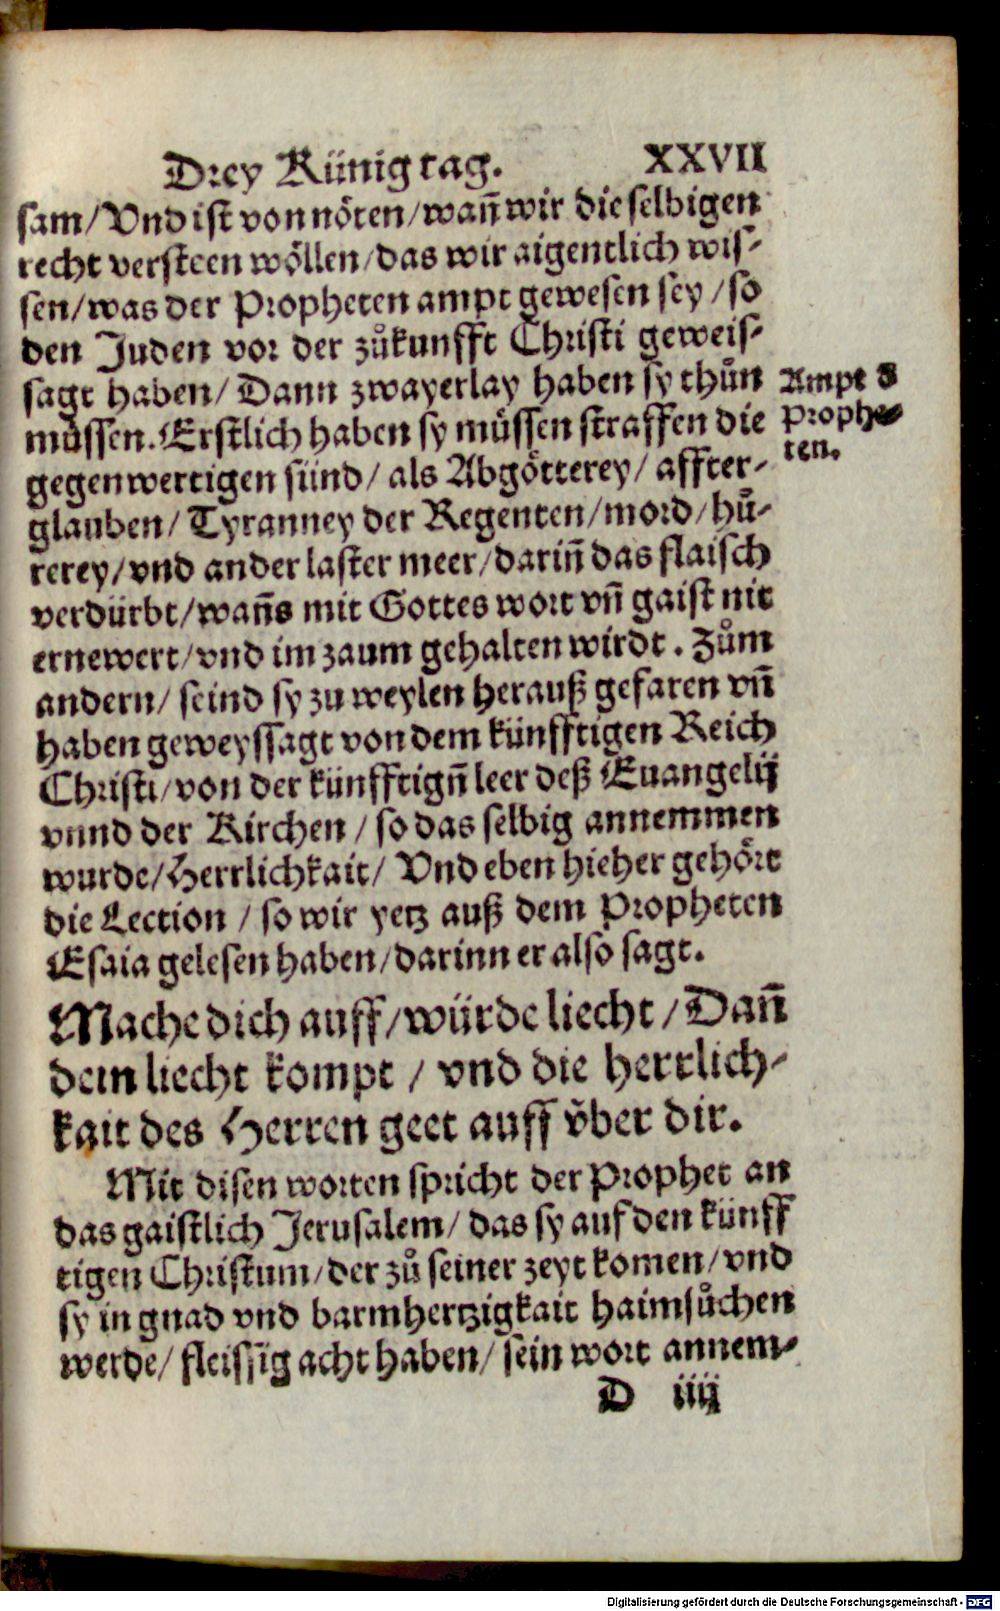 Drey Künig tag. XXVII
sam/ Vnd ist von nöten/ wañ wir die selbigen
recht versteen wöllen/ das wir aigentlich wis-
sen/ was der Propheten ampt gewesen sey/ so
den Juden vor der zůkunfft Christi geweis-
sagt haben/ Dann zwayerlay haben sy thůn
müssen. Erstlich haben sy müssen straffen die
gegenwertigen sünd/ als Abgötterey/ affter-
glauben/ Tyranney der Regenten/ mord/ hů-
rerey/ vnd ander laster meer/ dariñ das flaisch
verdürbt/ wañs mit Gottes wort vñ gaist nit
ernewert/ vnd im zaum gehalten wirdt. Zům
andern/ seind sy zu weylen herauß gefaren vñ
haben geweyssagt von dem künfftigen Reich
Christi/ von der künfftigñ leer deß Euangelij
vnnd der Kirchen/ so das selbig annemmen
wurde/ Herrlichkait/ Vnd eben hieher gehört
die Lection/ so wir yetz auß dem Propheten
Esaia gelesen haben/ darinn er also sagt.
Mache dich auff/ würde liecht/ Dañ
dein liecht kompt/ vnd die herrlich-
kait des Herren geet auff v̈ber dir.
Mit disen worten spricht der Prophet an
das gaistlich Jerusalem/ das sy auf den künff
tigen Christum/ der zů seiner zeyt komen/ vnd
sy in gnad vnd barmhertzigkait haimsůchen
werde/ fleissig acht haben/ sein wort annem-
D iiij
Ampt d
Prophe-
ten.
Digitalisierung gefördert durch die Deutsche Forschungsgemeinschaft - DFG